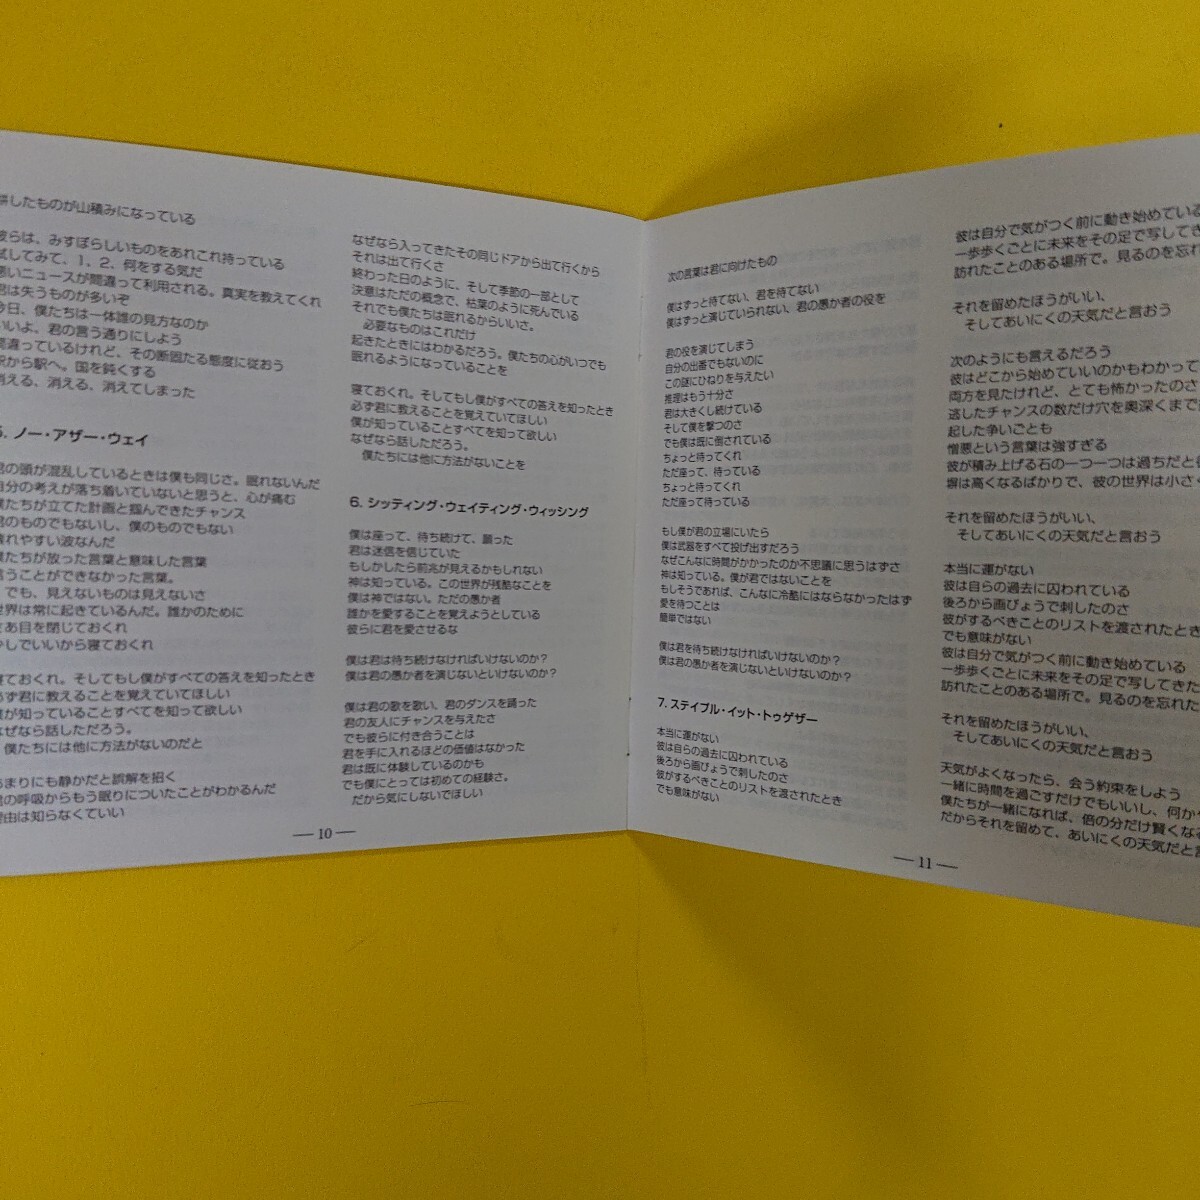 したものが山積みになっている
彼らは、みすぼらしいものをあれこれ持っている
試してみて、1、2、何をする気だ
悪いニュースが間違って利用される。真実を教えてくれ
君は失うものが多いぞ
今日、僕たちは一体誰の見方なのか
いいよ。君の言う通りにしよう
間違っているけれど、その断固たる態度に従おう
駅から駅へ。国を鈍くする
消える、消える、消えてしまった
5. ノー・アザー・ウェイ
君の頭が混乱しているときは僕も同じさ。眠れないんだ
自分の考えが落ち着いていないと思うと、心が痛む
僕たちが立てた計画と掴んできたチャンス
君のものでもないし、僕のものでもない
壊れやすい波なんだ
僕たちが放った言葉と意味した言葉
言うことができなかった言葉。
でも、見えないものは見えないさ
世界は常に起きているんだ。誰かのために
さあ目を閉じておくれ
少しでいいから寝ておくれ
寝ておくれ。そしてもし僕がすべての答えを知ったとき
必ず君に教えることを覚えていてほしい
僕が知っていることすべてを知って欲しい
なぜなら話しただろう。
僕たちには他に方法がないのだと
あまりにも静かだと誤解を招く
君の呼吸からもう眠りについたことがわかるんだ
理由は知らなくていい
なぜなら入ってきたその同じドアから出て行くから
それは出て行くさ
終わった日のように、そして季節の一部として
決意はただの概念で、枯葉のように死んでいる
それでも僕たちは眠れるからいいさ。
必要なものはこれだけ
起きたときにはわかるだろう。僕たちの心がいつでも
眠れるようになっていることを
寝ておくれ。そしてもし僕がすべての答えを知ったとき
必ず君に教えることを覚えていてほしい
僕が知っていることすべてを知って欲しい
なぜなら話しただろう。
僕たちには他に方法がないことを
6. シッティング・ウェイティング・ウィッシング
僕は座って、待ち続けて、願った
君は迷信を信じていた
もしかしたら前兆が見えるかもしれない
神は知っている。この世界が残酷なことを
僕は神ではない。ただの愚か者
誰かを愛することを覚えようとしている
彼らに君を愛させるな
僕は君は待ち続けなければいけないのか？
僕は君の愚か者を演じないといけないのか？
僕は君の歌を歌い、君のダンスを踊った
君の友人にチャンスを与えたさ
でも彼らに付き合うことは
君を手に入れるほどの価値はなかった
君は既に体験しているのかも
でも僕にとっては初めての経験さ。
だから気にしないでほしい
— 10 —
次の言葉は君に向けたもの
僕はずっと待てない、君を待てない
僕はずっと演じていられない、君の愚か者の役を
君の役を演じてしまう
自分の出番でもないのに
この謎にひねりを与えたい
推理はもう十分さ
君は大きくし続けている
そして僕を撃つのさ
でも僕は既に倒されている
ちょっと待ってくれ
ただ座って、待っている
ちょっと待ってくれ
ただ座って待っている
もし僕が君の立場にいたら
僕は武器をすべて投げ出すだろう
なぜこんなに時間がかかったのか不思議に思うはずさ
神は知っている。僕が君ではないことを
もしそうであれば、こんなに冷酷にはならなかったはず
愛を待つことは
簡単ではない
僕は君を待ち続けなければいけないのか？
僕は君の愚か者を演じないといけないのか？
7. ステイプル・イット・トゥゲザー
本当に運がない
彼は自らの過去に囚われている
後ろから画びょうで刺したのさ
彼がするべきことのリストを渡されたとき
でも意味がない
彼は自分で気がつく前に動き始めている
一歩歩くごとに未来をその足で写してき
訪れたことのある場所で。見るのを忘れた
それを留めたほうがいい、
そしてあいにくの天気だと言おう
次のようにも言えるだろう
彼はどこから始めていいのかもわかって
両方を見たけれど、とても怖かったのさ
逃したチャンスの数だけ穴を奥深くまで
起した争いごとも
憎悪という言葉は強すぎる
彼が積み上げる石の一つ一つは過ちだと
塀は高くなるばかりで、彼の世界は小さく
それを留めたほうがいい、
そしてあいにくの天気だと言おう
本当に運がない
彼は自らの過去に囚われている
後ろから画びょうで刺したのさ
彼がするべきことのリストを渡されたとき
でも意味がない
彼は自分で気がつく前に動き始めている
一歩歩くごとに未来をその足で写してきた
訪れたことのある場所で。見るのを忘れた
それを留めたほうがいい、
そしてあいにくの天気だと言おう
天気がよくなったら、会う約束をしよう
一緒に時間を過ごすだけでもいいし、何か
僕たちが一緒になれば、倍の分だけ賢くなる
だからそれを留めて、あいにくの天気だと言
— 11 —